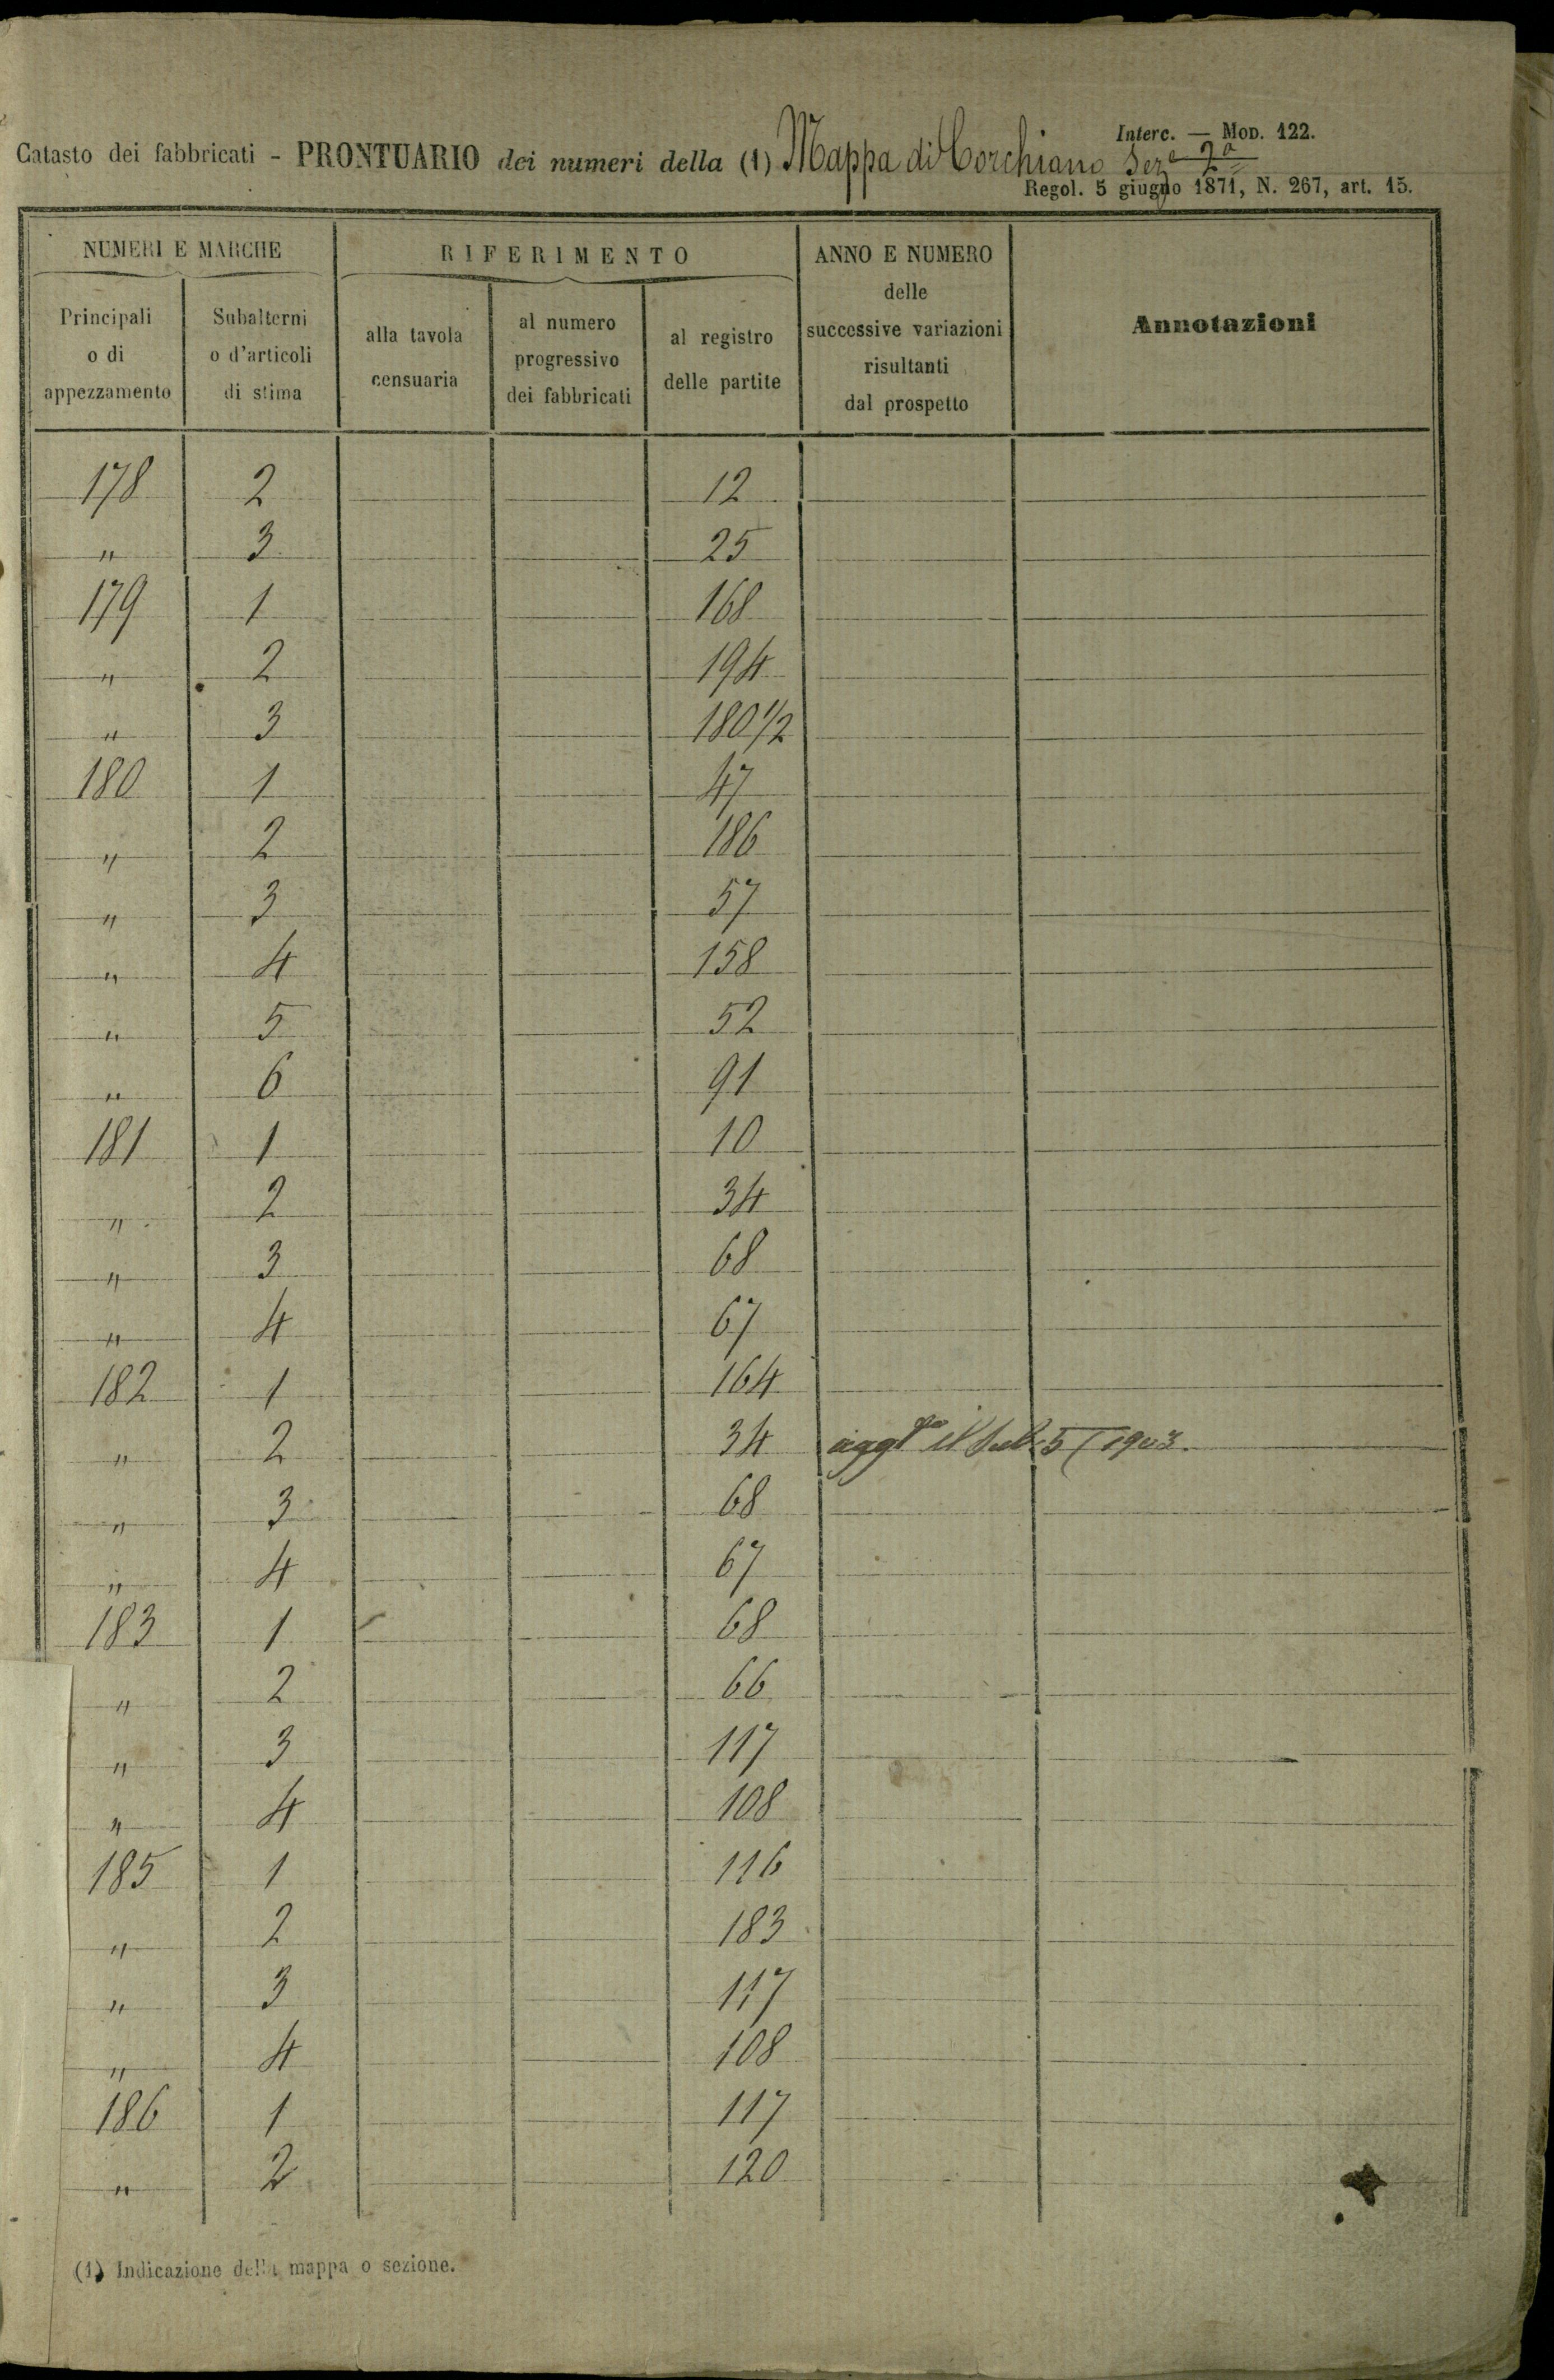 Interc. — MOD. 122.
Catasto dei fabbricati - PRONTUARIO dei numeri della (1) Mappa di Corchiano Sez.e 2a
Regol. 5 giugno 1871, N. 267, art. 15.
NUMERI E MARCHE RIFERIMENTO ANNO E NUMERO delle successive variazioni risultanti dal prospetto Annotazioni
Principali o di appezzamento Subalterni o d'articoli di stima alla tavola censuaria al numero progressivo dei fabbricati al registro delle partite
178 2 12
" 3 25
179 1 168
" 2 194
" 3 180 1/2
180 1 47
" 2 186
" 3 57
" 4 158
" 5 52
" 6 91
181 1 10
" 2 34
" 3 68
" 4 67
182 1 164
" 2 34 il sub. 5 1903.
" 3 68
" 4 67
183 1 68
" 2 66
" 3 117
" 4 108
185 1 116
" 2 183
" 3 117
" 4 108
186 1 117
" 2 120
(1) Indicazione della mappa o sezione.